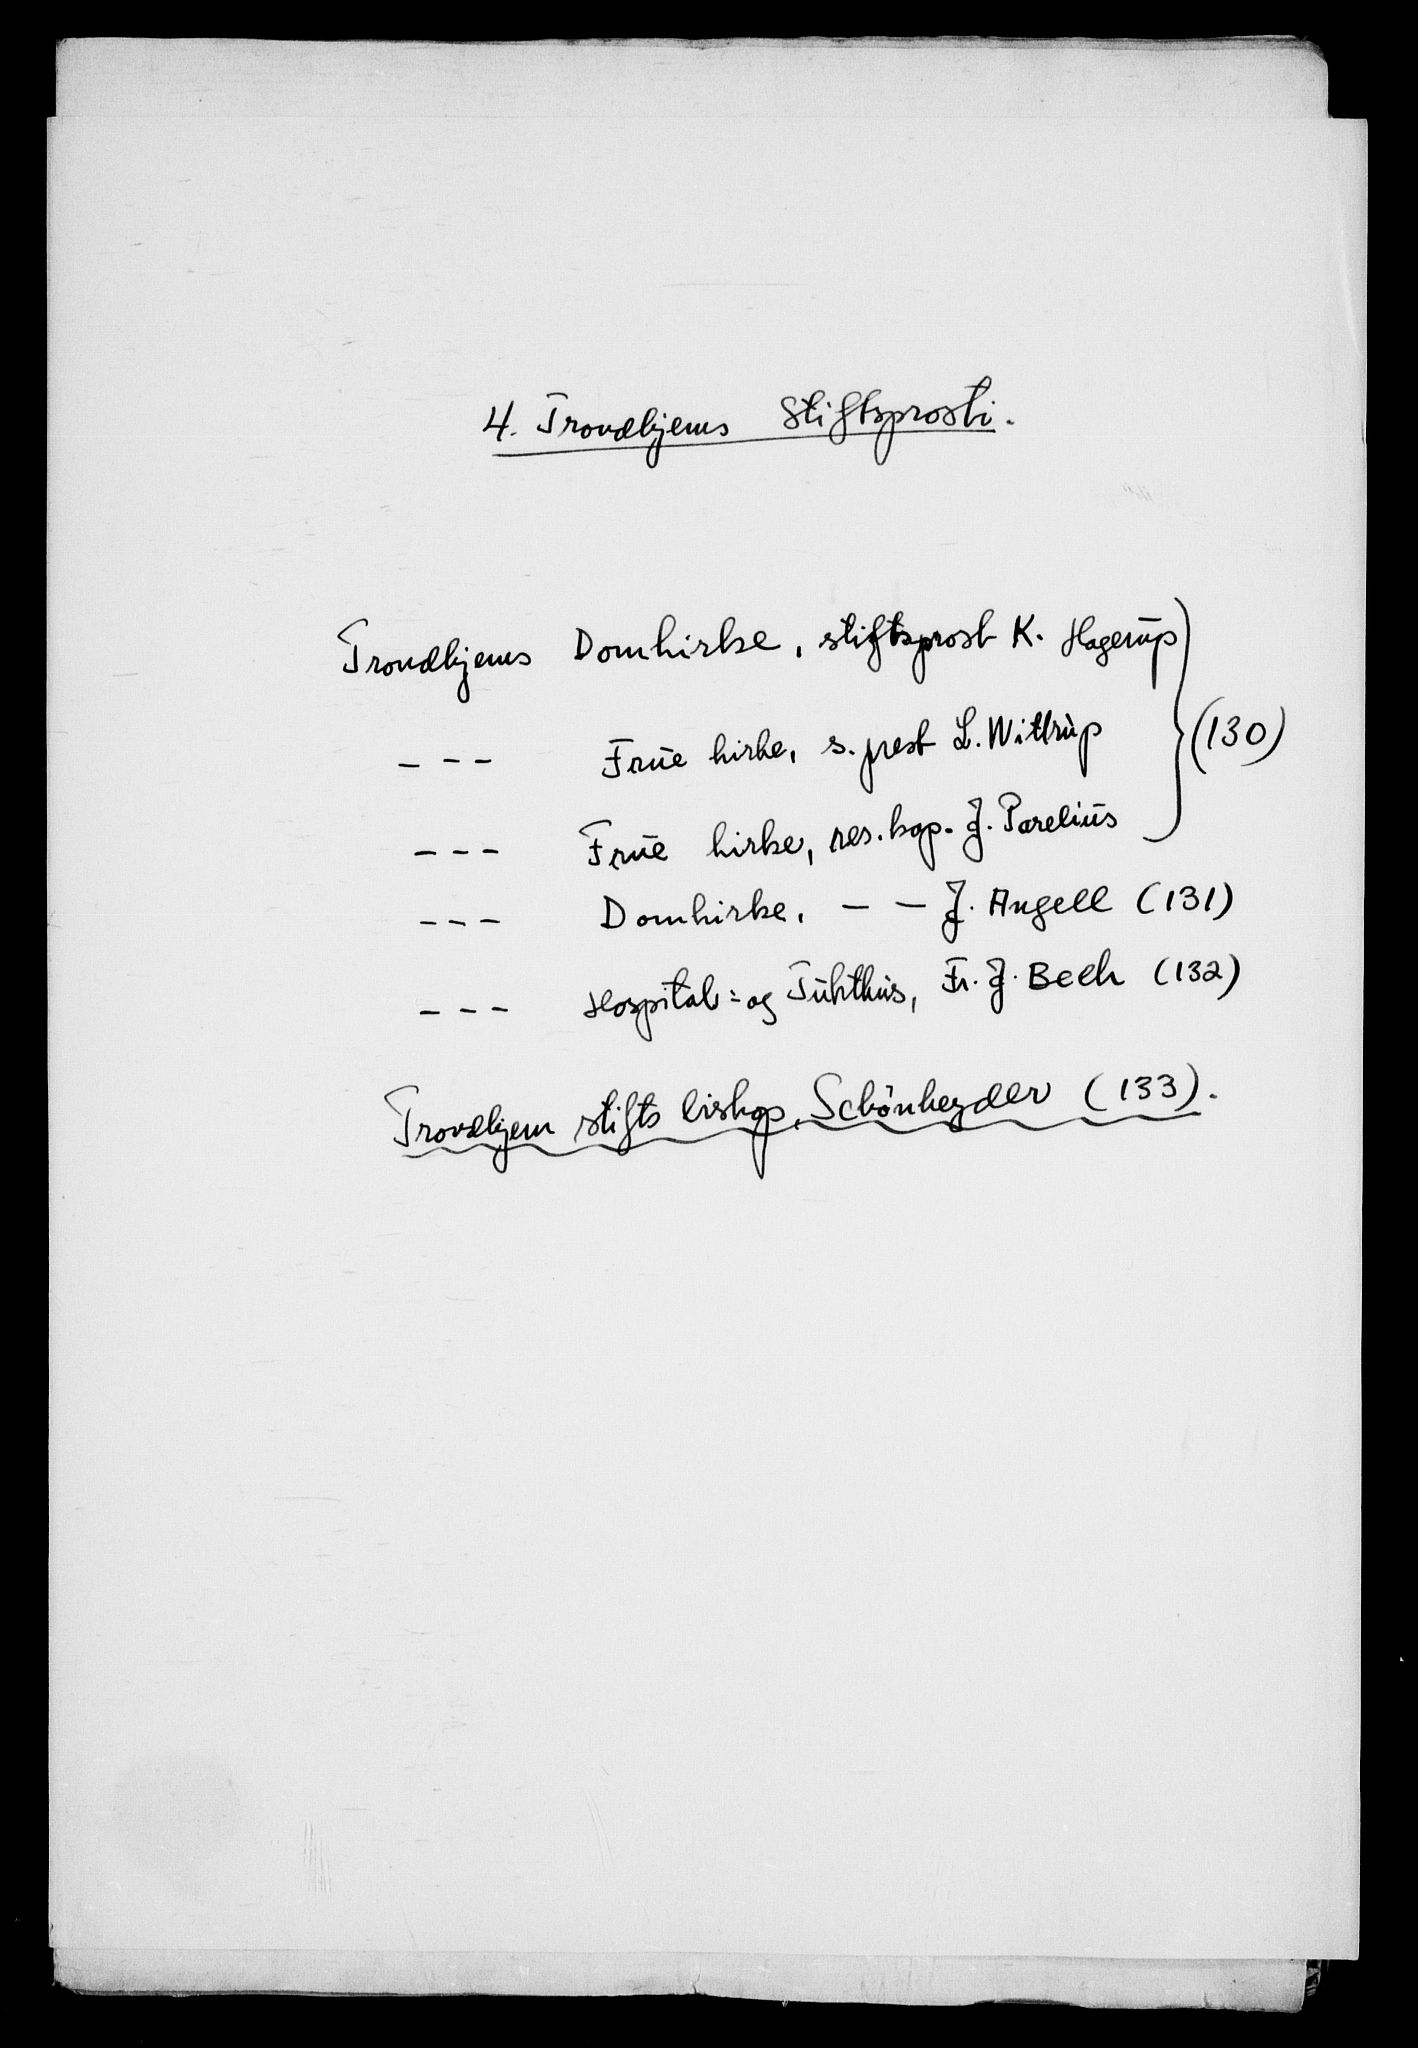 4. Trondhjems Stiftsprosti.
Trondhjems Domkirke, stiftsprost K. Hagerup
– – – Frue kirke, s. prest L. Wittrup } (130)
– – – Frue kirke, res. kap. J. Parelius
– – – Domkirke, – – J. Angell (131)
– – – Hospital = og Tukthus, Fr. J. Bech (132)
Trondhjem stifts biskop, Schönheyder (133).